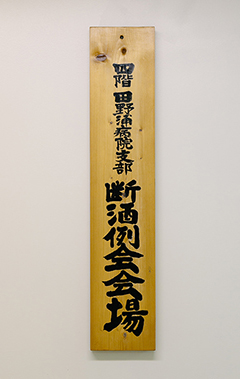 四階 田野浦病院支部
断酒例会会場